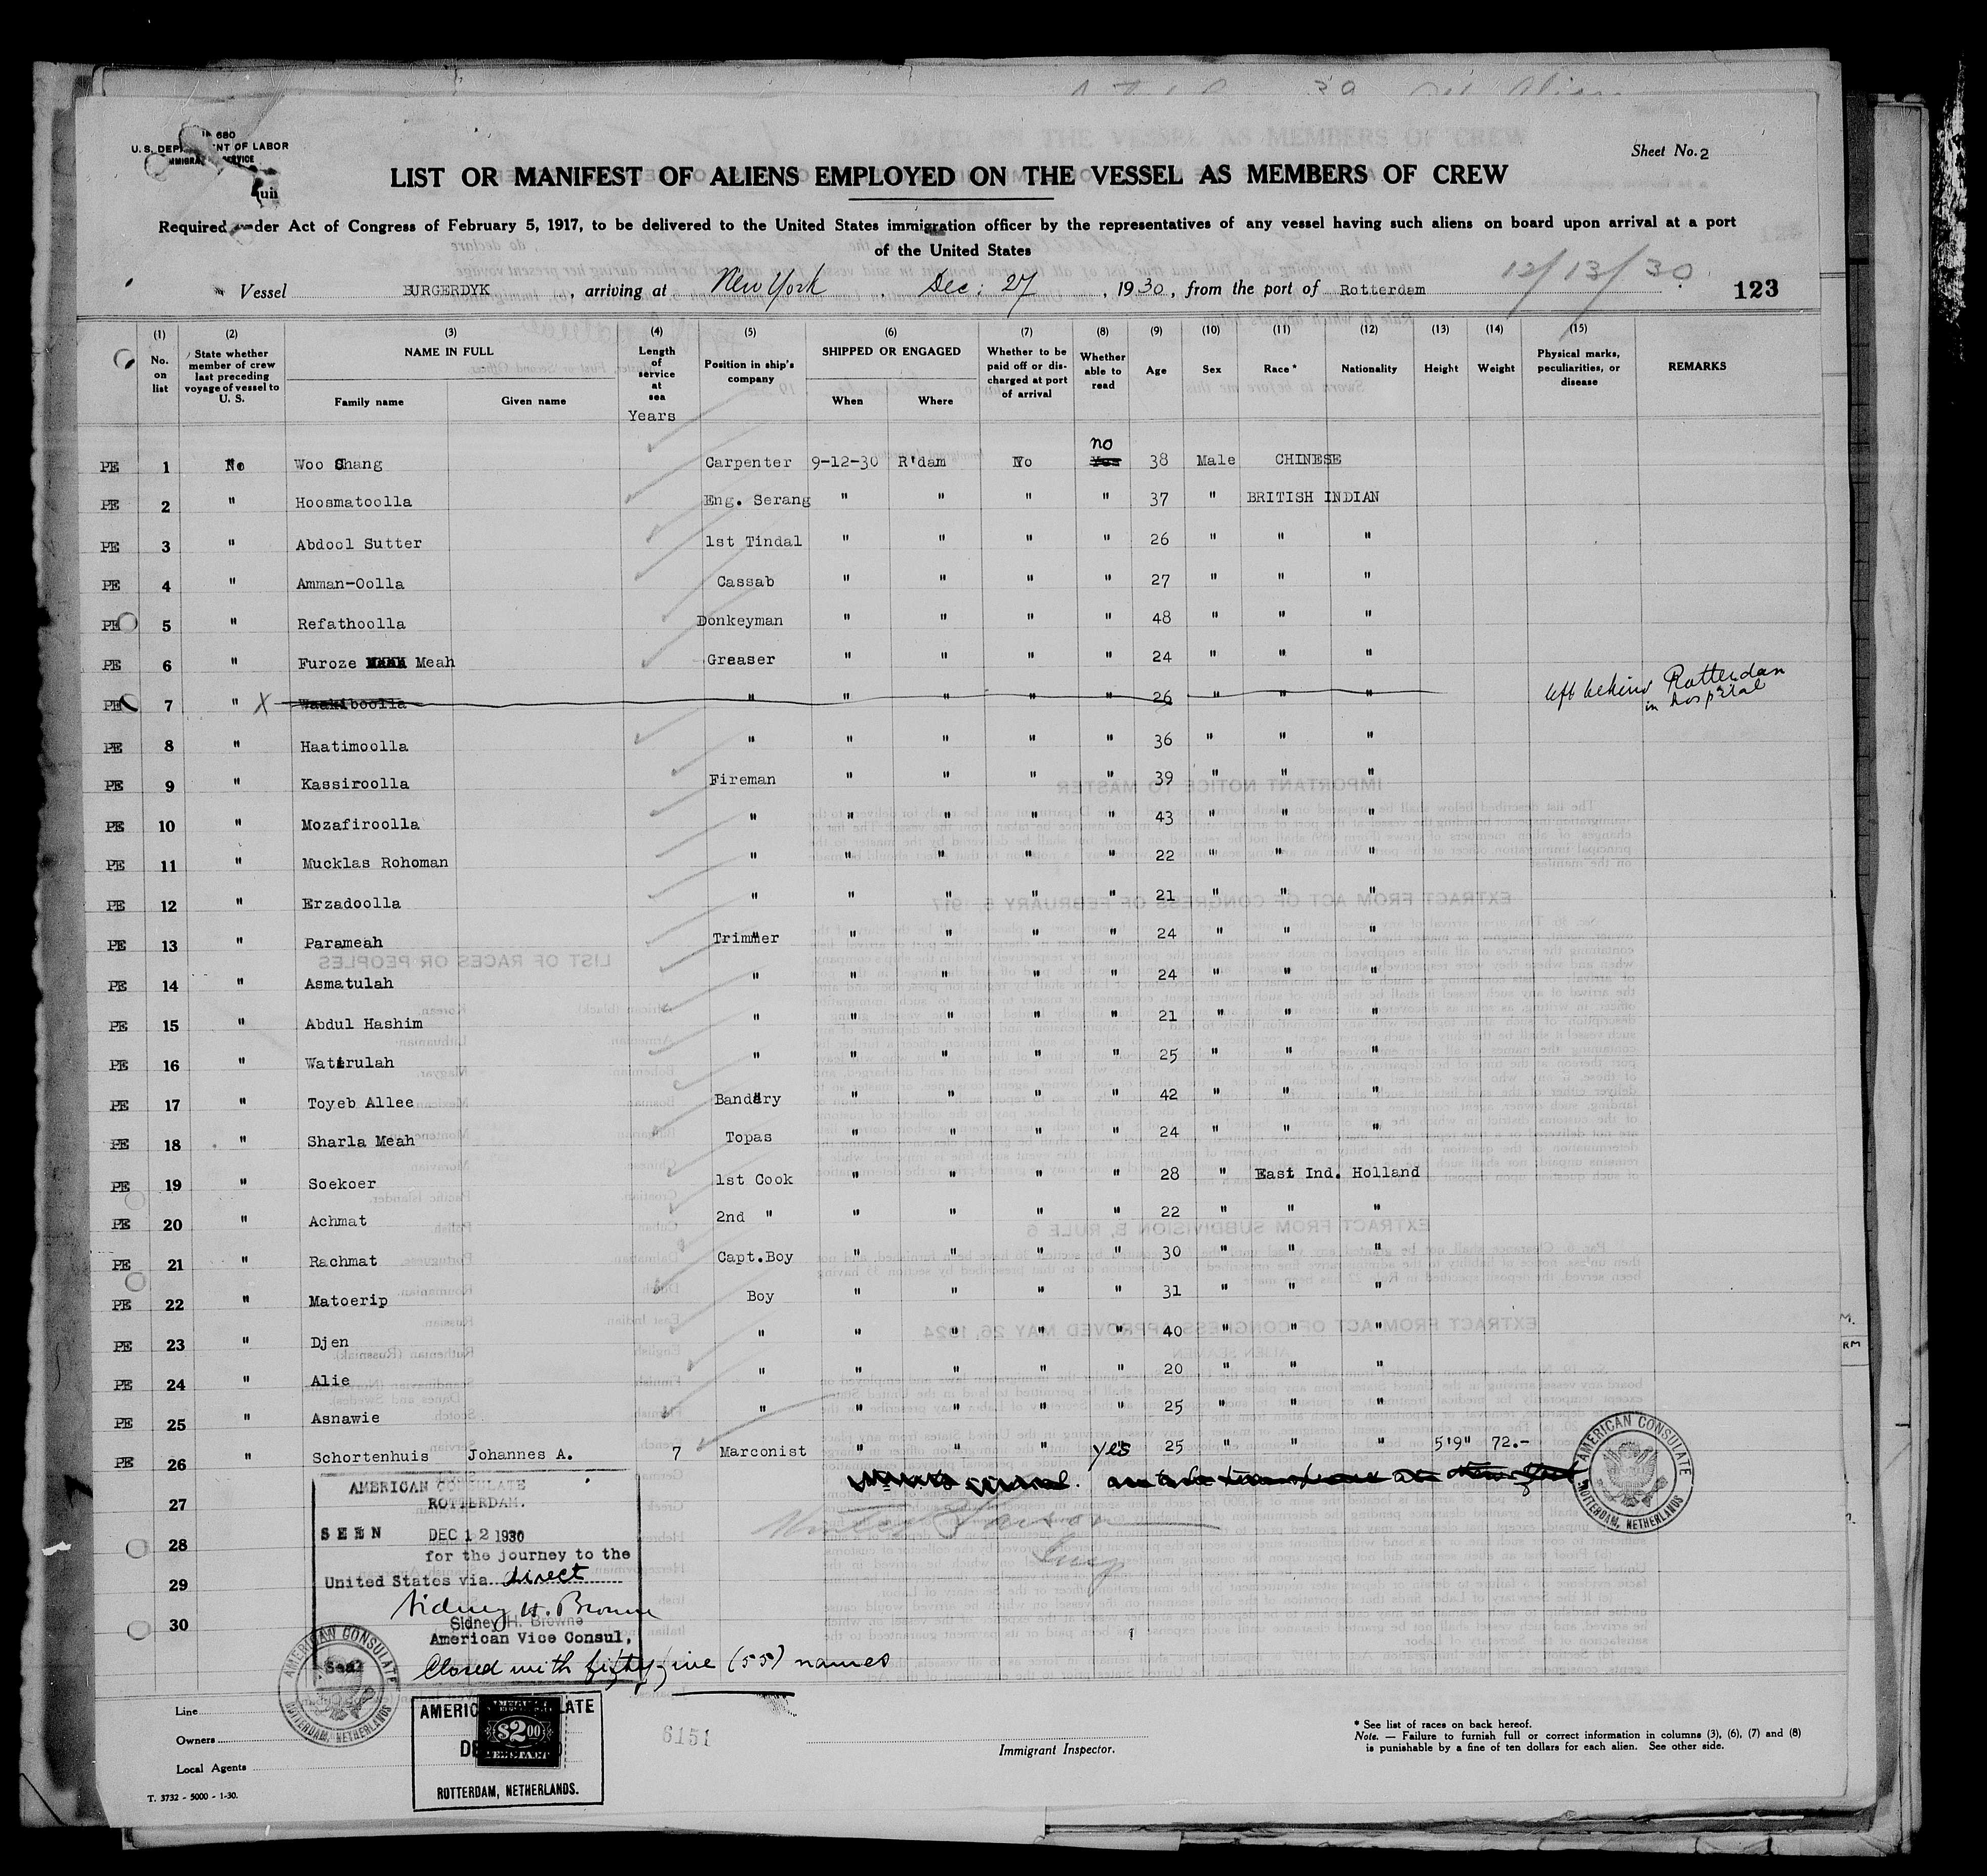 680
U. S. DEP NT OF LABOR
IMMIGRA SERVICE
Sheet No. 2
LIST OR MANIFEST OF ALIENS EMPLOYED ON THE VESSEL AS MEMBERS OF CREW
Required under Act of Congress of February 5, 1917, to be delivered to the United States immigration officer by the representatives of any vessel having such aliens on board upon arrival at a port
of the United States
12/13/30
Vessel BURGERDYK, arriving at New York, Dec: 27, 1930, from the port of Rotterdam 123
(1) (2) (3) (4) (5) (6) (7) (8) (9) (10) (11) (12) (13) (14) (15)
No. on list State whether member of crew last preceding voyage of vessel to U. S. NAME IN FULL Family name Given name Length of service at sea Years Position in ship's company SHIPPED OR ENGAGED When Where Whether to be paid off or discharged at port of arrival Whether able to read Age Sex Race * Nationality Height Weight Physical marks, peculiarities, or disease REMARKS
no
PE 1 No Woo Shang Carpenter 9-12-30 R'dam No Yes 38 Male CHINESE
PE 2 " Hoosmatoolla Eng. Serang " " " " 37 " BRITISH INDIAN
PE 3 " Abdool Sutter 1st Tindal " " " " 26 " " "
PE 4 " Amman-Oolla Cassab " " " " 27 " " "
PE 5 " Refathoolla Donkeyman " " " " 48 " " "
PE 6 " Furoze Meah Greaser " " " " 24 " " "
PE 7 " X Waakiboolla " " " " " 26 " " " left behind Rotterdam
in hospital
PE 8 " Haatimoolla " " " " " 36 " " "
PE 9 " Kassiroolla Fireman " " " " 39 " " "
PE 10 " Mozafiroolla " " " " " 43 " " "
PE 11 " Mucklas Rohoman " " " " " 22 " " "
PE 12 " Erzadoolla " " " " " 21 " " "
PE 13 " Parameah Trimmer " " " " 24 " " "
PE 14 " Asmatulah " " " " " 24 " " "
PE 15 " Abdul Hashim " " " " " 21 " " "
PE 16 " Watirulah " " " " " 25 " " "
PE 17 " Toyeb Allee Bandary " " " " 42 " " "
PE 18 " Sharla Meah Topas " " " " 24 " " "
PE 19 " Soekoer 1st Cook " " " " 28 " East Ind. Holland
PE 20 " Achmat 2nd " " " " " 22 " " "
PE 21 " Rachmat Capt.Boy " " " " 30 " " "
PE 22 " Matoerip Boy " " " " 31 " " "
PE 23 " Djen " " " " " 40 " " "
PE 24 " Alie " " " " " 20 " " "
PE 25 " Asnawie " " " " " 25 " " "
PE 26 " Schortenhuis Johannes A. 7 Marconist " " " yes 25 " " " 5'9" 72.-
27
28
29
30
AMERICAN CONSULATE
ROTTERDAM.
SEEN DEC 12 1930
for the journey to the
United States via direct
Sidney H. Browne
Sidney H. Browne
American Vice Consul,
Closed with fifty-five (55) names
AMERICAN CONSULATE
ROTTERDAM, NETHERLANDS.
AMERICAN CONSULATE
Seal
ROTTERDAM, NETHERLANDS.
Line
Owners
Local Agents
AMERIC LATE
$2.00
DE 0
ROTTERDAM, NETHERLANDS.
6151
Immigrant Inspector.
* See list of races on back hereof.
Note. — Failure to furnish full or correct information in columns (3), (6), (7) and (8)
is punishable by a fine of ten dollars for each alien. See other side.
T. 3732 - 5000 - 1-30.